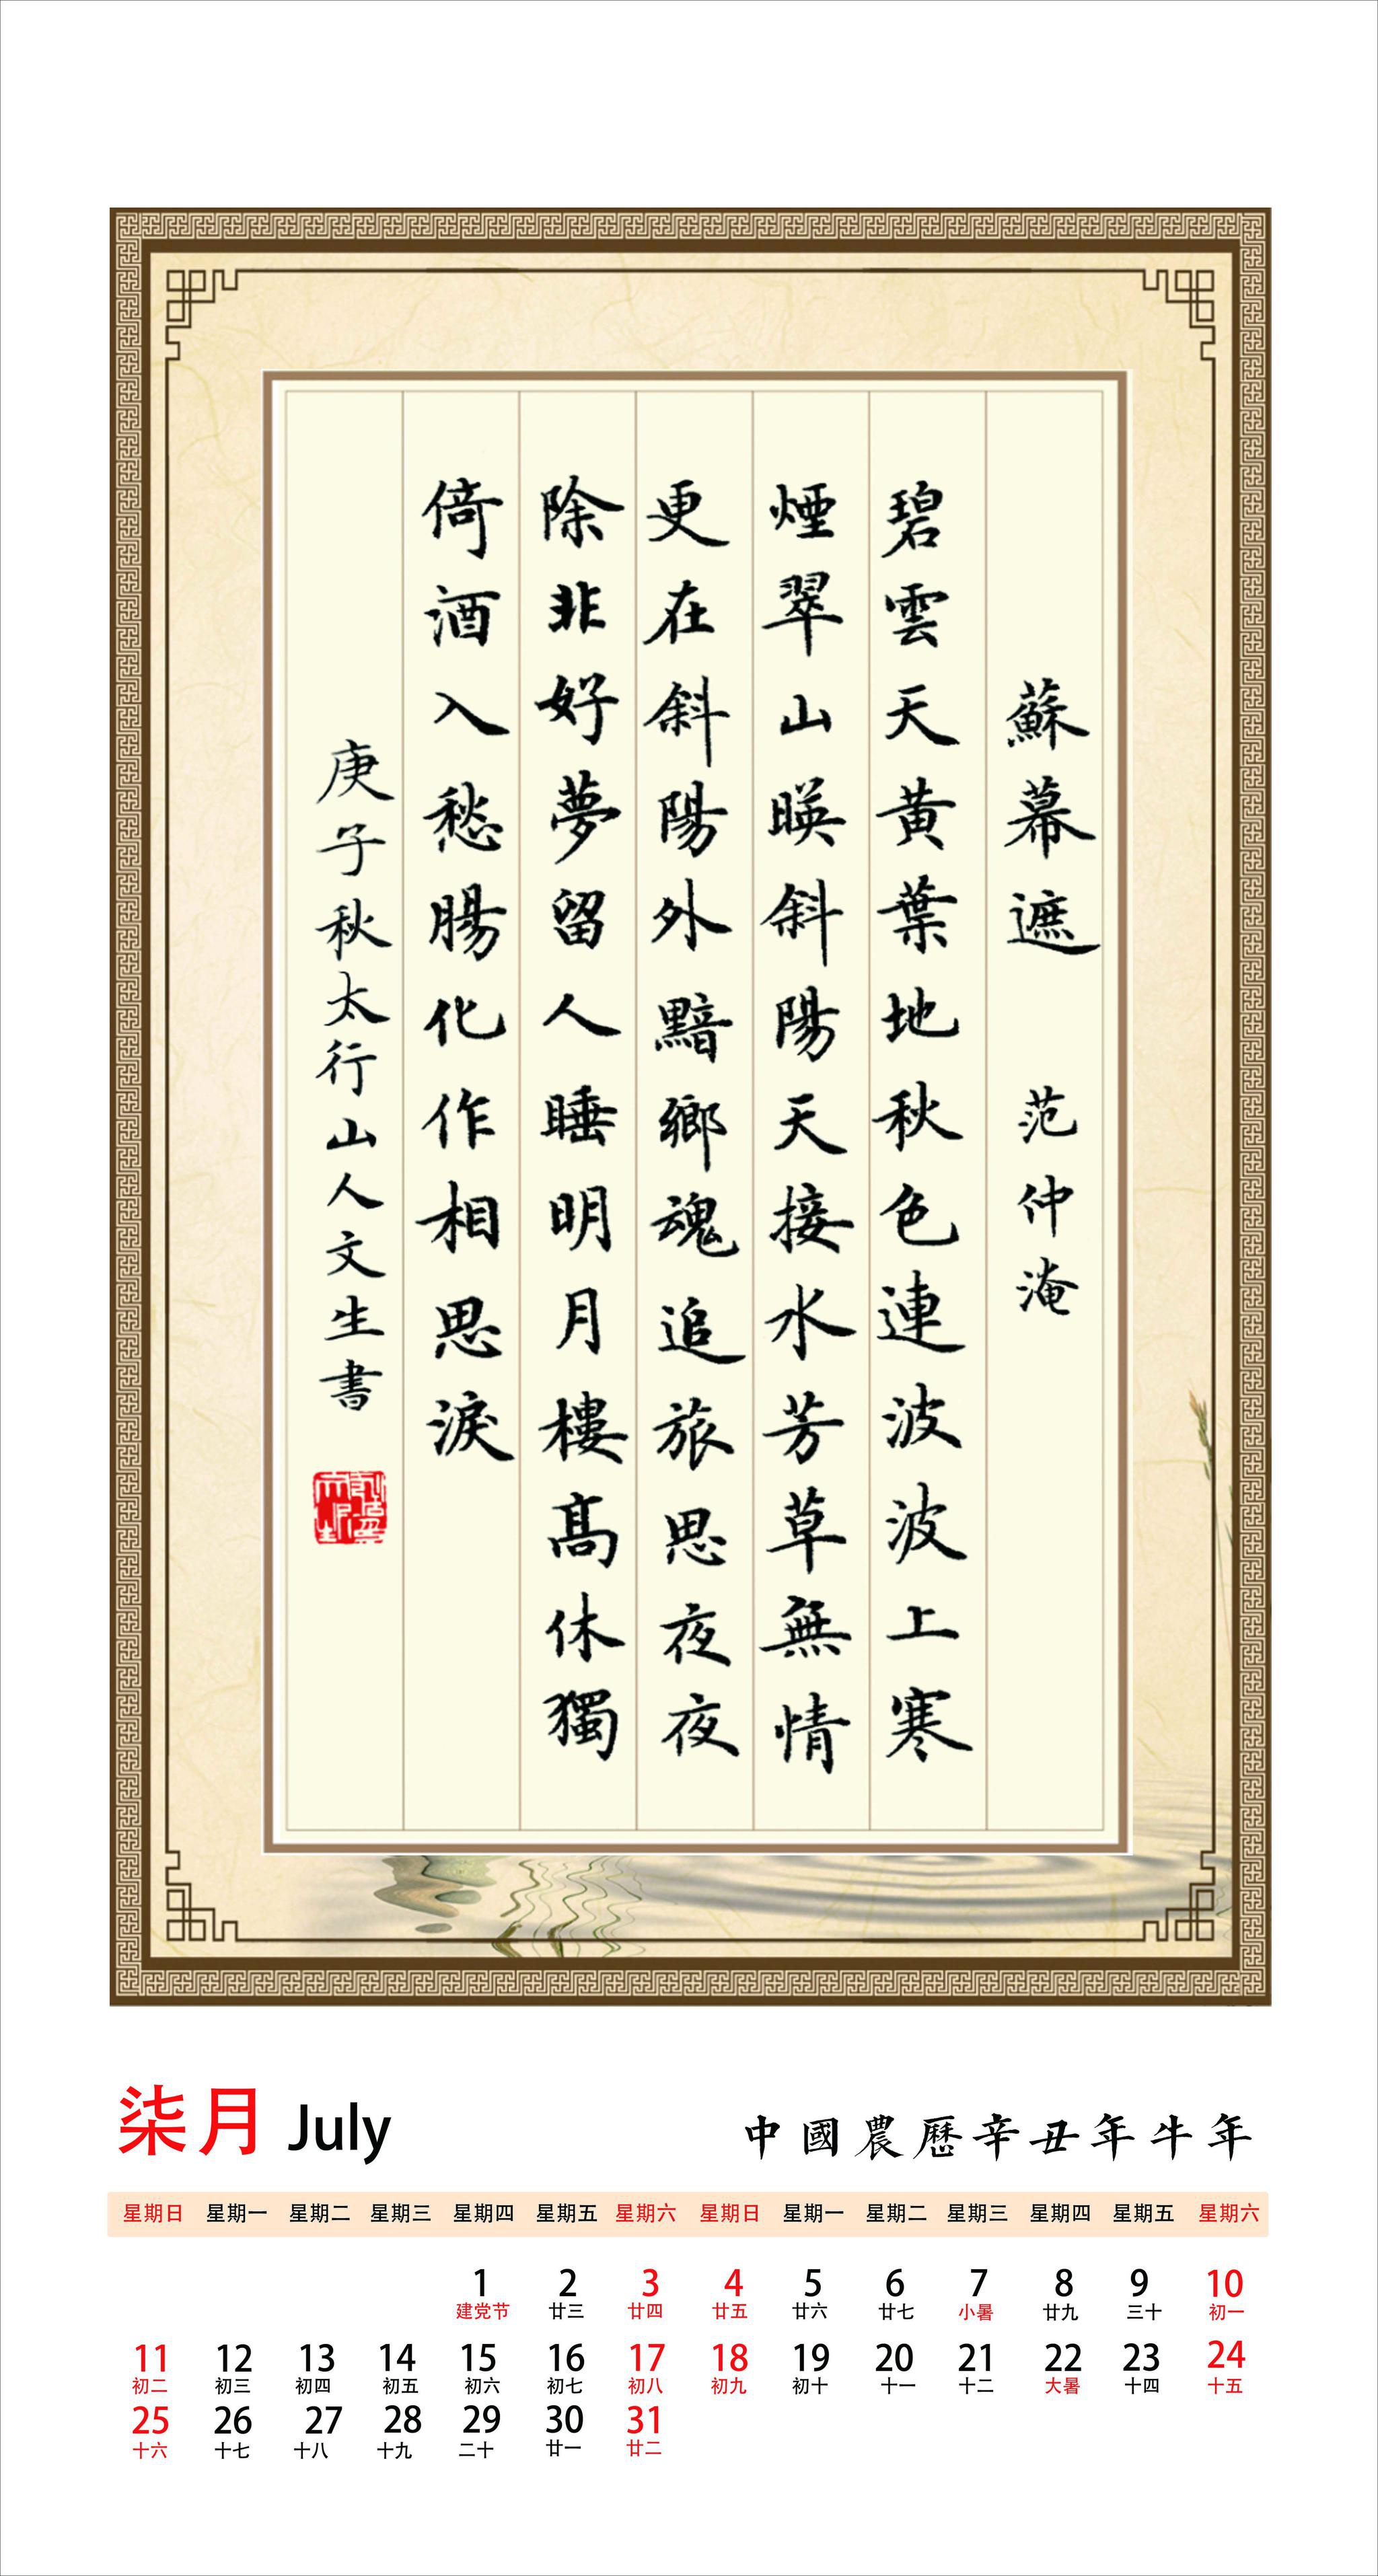 蘇幕遮 范仲淹
碧雲天黄葉地秋色連波波上寒
煙翠山暎斜陽天接水芳草無情
更在斜陽外黯鄉魂追旅思夜夜
除非好夢留人睡明月樓髙休獨
倚酒入愁腸化作相思淚
庚子秋太行山人文生書
柒月 July
中國農歷辛丑年牛年
星期日 星期一 星期二 星期三 星期四 星期五 星期六 星期日 星期一 星期二 星期三 星期四 星期五 星期六
1 2 3 4 5 6 7 8 9 10
建党节 廿三 廿四 廿五 廿六 廿七 小暑 廿九 三十 初一
11 12 13 14 15 16 17 18 19 20 21 22 23 24
初二 初三 初四 初五 初六 初七 初八 初九 初十 十一 十二 大暑 十四 十五
25 26 27 28 29 30 31
十六 十七 十八 十九 二十 廿一 廿二